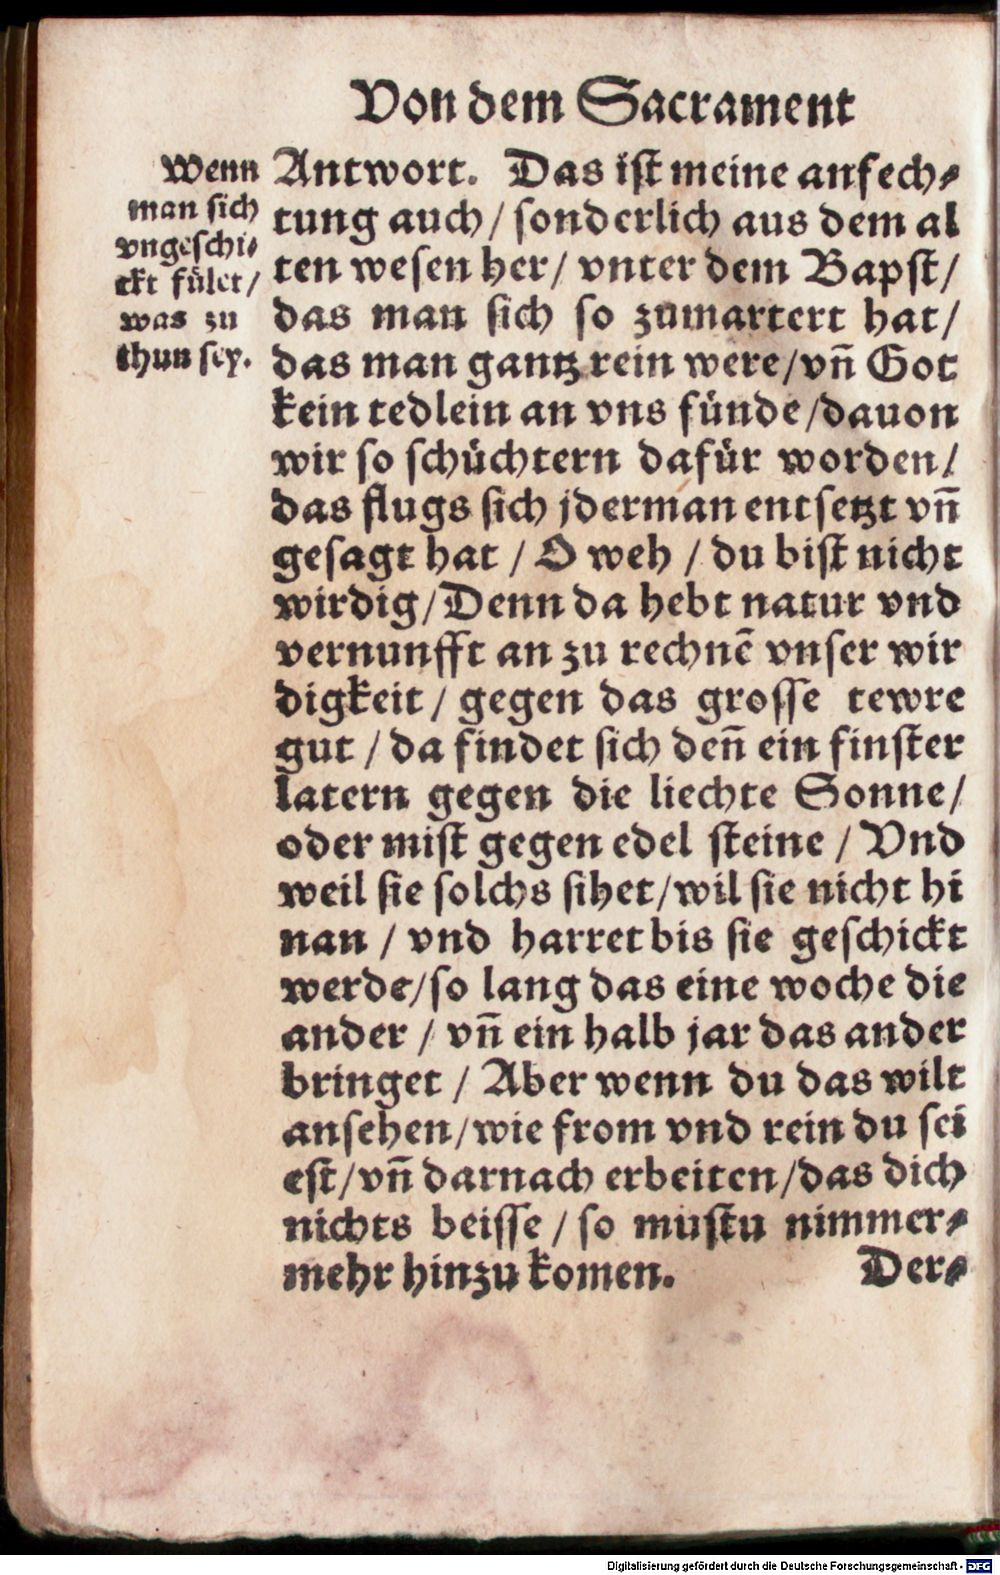 Von dem Sacrament
Wenn
man sich
vngeschi⸗
ckt fület/
was zu
thun sey.
Antwort. Das ist meine anfech⸗
tung auch/ sonderlich aus dem al
ten wesen her/ vnter dem Bapst/
das man sich so zumartert hat/
das man gantz rein were/vn̄ Got
kein tedlein an vns fünde/dauon
wir so schüchtern dafür worden/
das flugs sich jderman entsetzt vn̄
gesagt hat / O weh / du bist nicht
wirdig/Denn da hebt natur vnd
vernunfft an zu rechnē vnser wir
digkeit / gegen das grosse tewre
gut / da findet sich den̄ ein finster
latern gegen die liechte Sonne/
oder mist gegen edel steine / Vnd
weil sie solchs sihet/wil sie nicht hi
nan / vnd harret bis sie geschickt
werde/so lang das eine woche die
ander / vn̄ ein halb jar das ander
bringet / Aber wenn du das wilt
ansehen/wie from vnd rein du sei
est/vn̄ darnach erbeiten/das dich
nichts beisse / so mustu nimmer⸗
mehr hinzu komen.
Der⸗
Digitalisierung gefördert durch die Deutsche Forschungsgemeinschaft - DFG